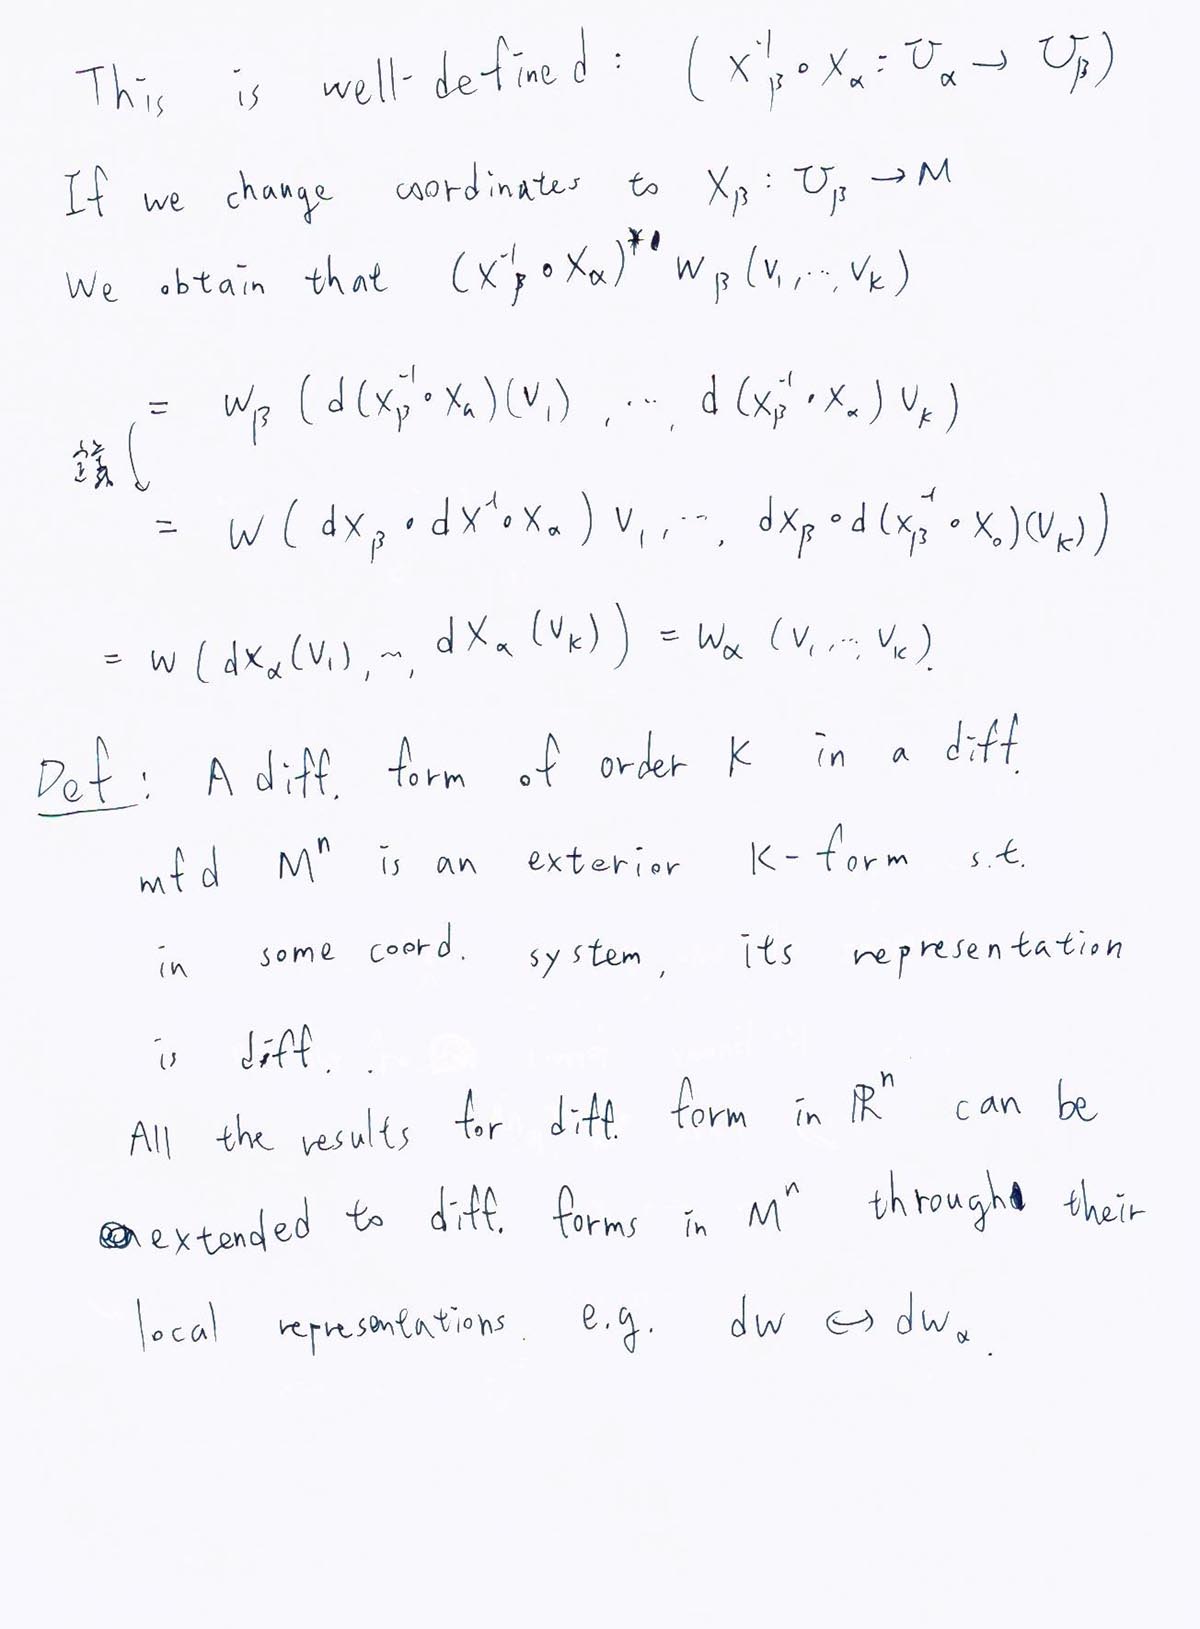 This is well-defined : ( X⁻¹_β ∘ X_α : U_α → U_β )
If we change coordinates to X_β : U_β → M
We obtain that (X⁻¹_β ∘ X_α)^* w_β (v_1, ..., v_k)
= w_β ( d(x_β⁻¹ ∘ x_α)(v_1) , ..., d (x_β⁻¹ ∘ x_α) v_k )
= w ( dx_β ∘ dx⁻¹ ∘ x_α ) v_1, ..., dx_β ∘ d(x_β⁻¹ ∘ X_o)(v_k))
= w ( dx_α(v_1), ~, dX_α (v_k)) = w_α (v_1, ..., v_k).
Def : A diff. form of order K in a diff.
mfd M^n is an exterior K-form s.t.
in some coord. system, its representation
is diff. .
All the results for diff. form in ℝ^n can be
extended to diff. forms in M^n through their
local representations. e.g. dw ↔ dw_α .